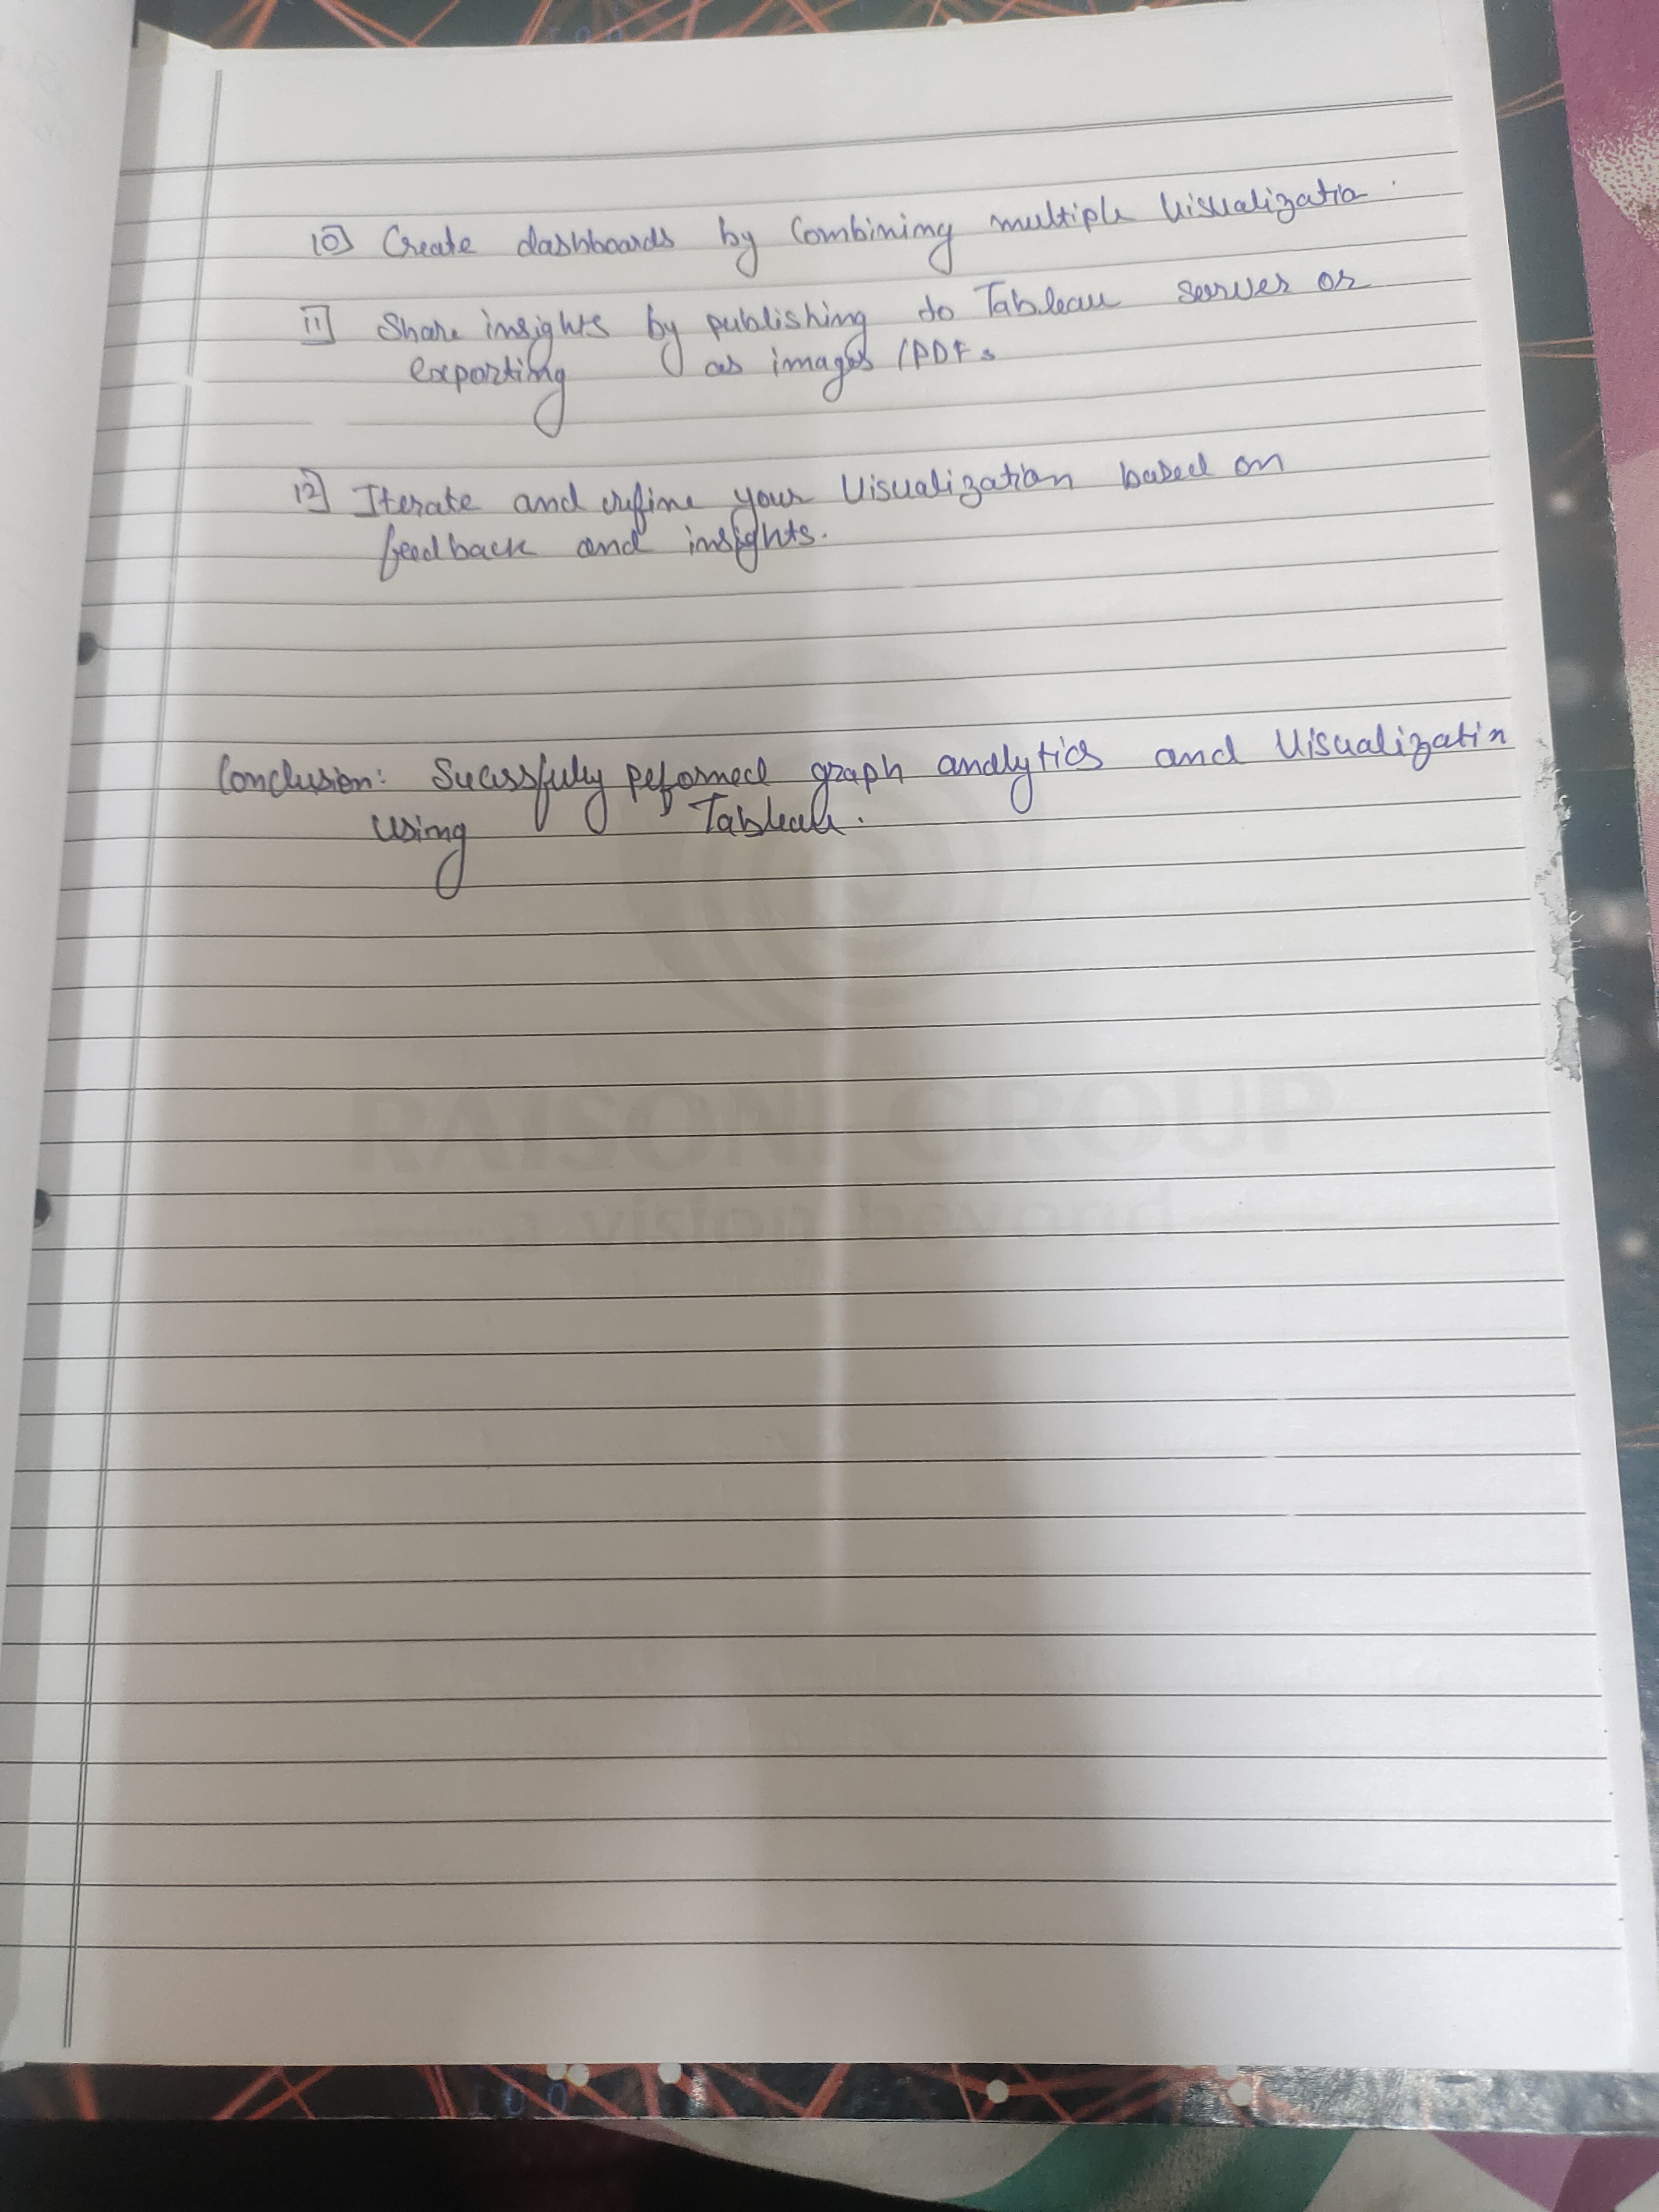 10] Create dashboards by Combining multiple Visualizatio.
11] Share insights by publishing to Tableau server or
exporting as images /PDFs
12] Iterate and refine your Visualization based on
feedback and insights.
Conclusion: Sucessfully peformed graph analytics and Visualizatin
using Tableau.
RAISONI GROUP
a vision beyond